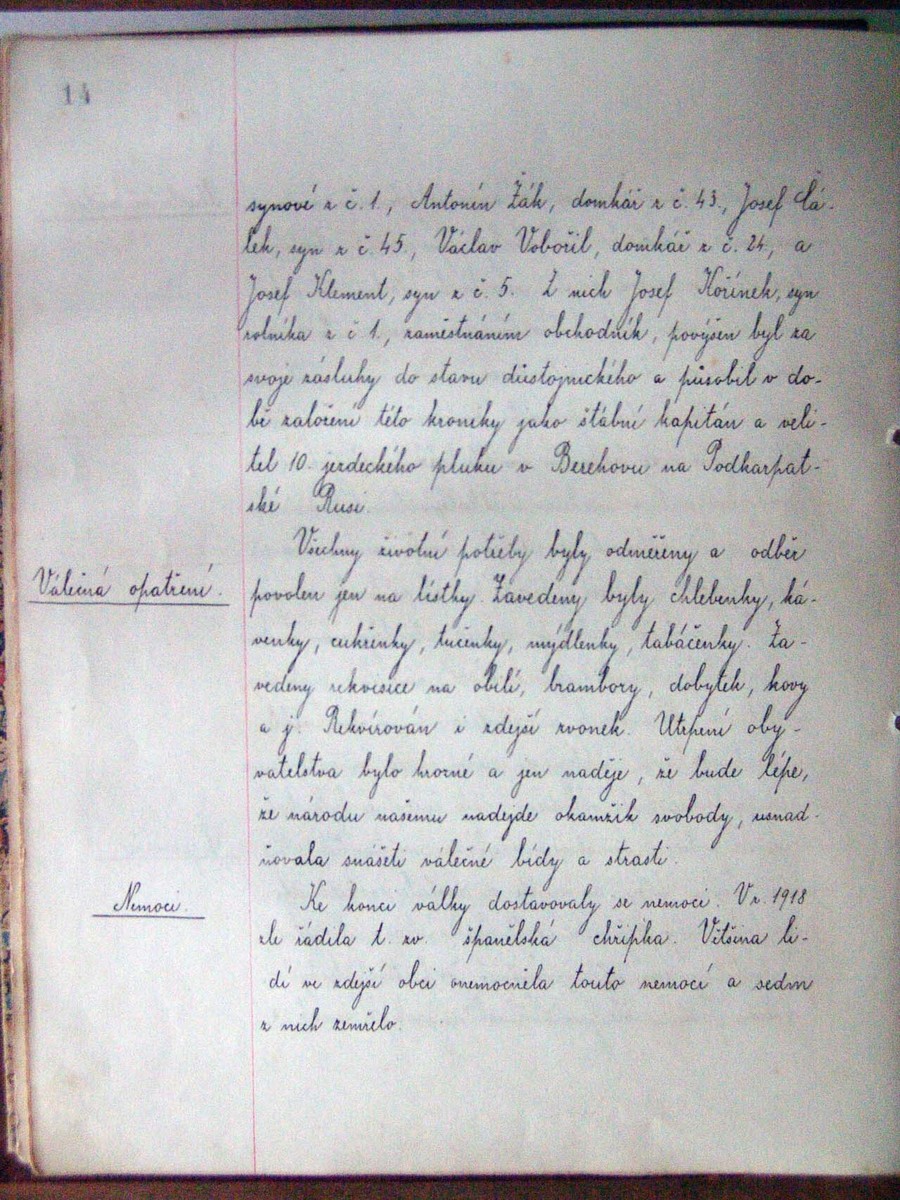 14
synové z č. 1., Antonín Žák, domkář z č. 43., Josef Čá-
lek, syn z č. 45., Václav Vobořil, domkář z č. 24., a
Josef Klement, syn z č. 5. Z nich Josef Kořínek, syn
rolníka z č. 1., zaměstnáním obchodník, povýšen byl za
svoje zásluhy do stavu důstojnického a působil v do-
bě založení této kroniky jako štábní kapitán a veli-
tel 10. jezdeckého pluku v Berehovu na Podkarpat-
ské Rusi.
Všechny životní potřeby byly odměřeny a odběr
Válečná opatření.
povolen jen na lístky. Zavedeny byly chlebenky, ká-
venky, cukřenky, tučenky, mýdlenky, tabáčenky. Za-
vedeny rekvisice na obilí, brambory, dobytek, kovy
a j. Rekvírován i zdejší zvonek. Utrpení oby-
vatelstva bylo hrozné a jen naděje, že bude lépe,
že národu našemu nadejde okamžik svobody, usnad-
ňovala snášeti válečné bídy a strasti.
Nemoci.
Ke konci války dostavovaly se nemoci. V r. 1918
zle řádila t. zv. španělská chřipka. Většina li-
dí ve zdejší obci onemocněla touto nemocí a sedm
z nich zemřelo.